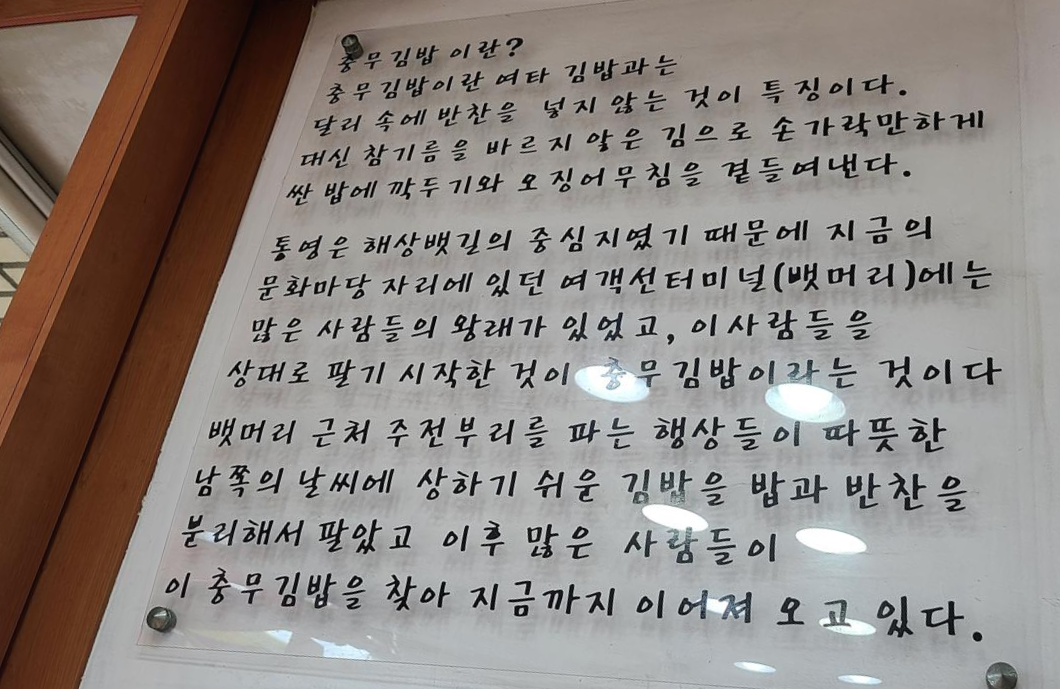 충무김밥 이란?
충무김밥이란 여타 김밥과는
달리 속에 반찬을 넣지 않는 것이 특징이다.
대신 참기름을 바르지 않은 김으로 손가락만하게
싼 밥에 깍두기와 오징어무침을 곁들여낸다.
통영은 해상뱃길의 중심지였기 때문에 지금의
문화마당 자리에 있던 여객선터미널(뱃머리)에는
많은 사람들의 왕래가 있었고, 이사람들을
상대로 팔기 시작한 것이 충무김밥이라는 것이다
뱃머리 근처 주전부리를 파는 행상들이 따뜻한
남쪽의 날씨에 상하기 쉬운 김밥을 밥과 반찬을
분리해서 팔았고 이후 많은 사람들이
이 충무김밥을 찾아 지금까지 이어져 오고 있다.